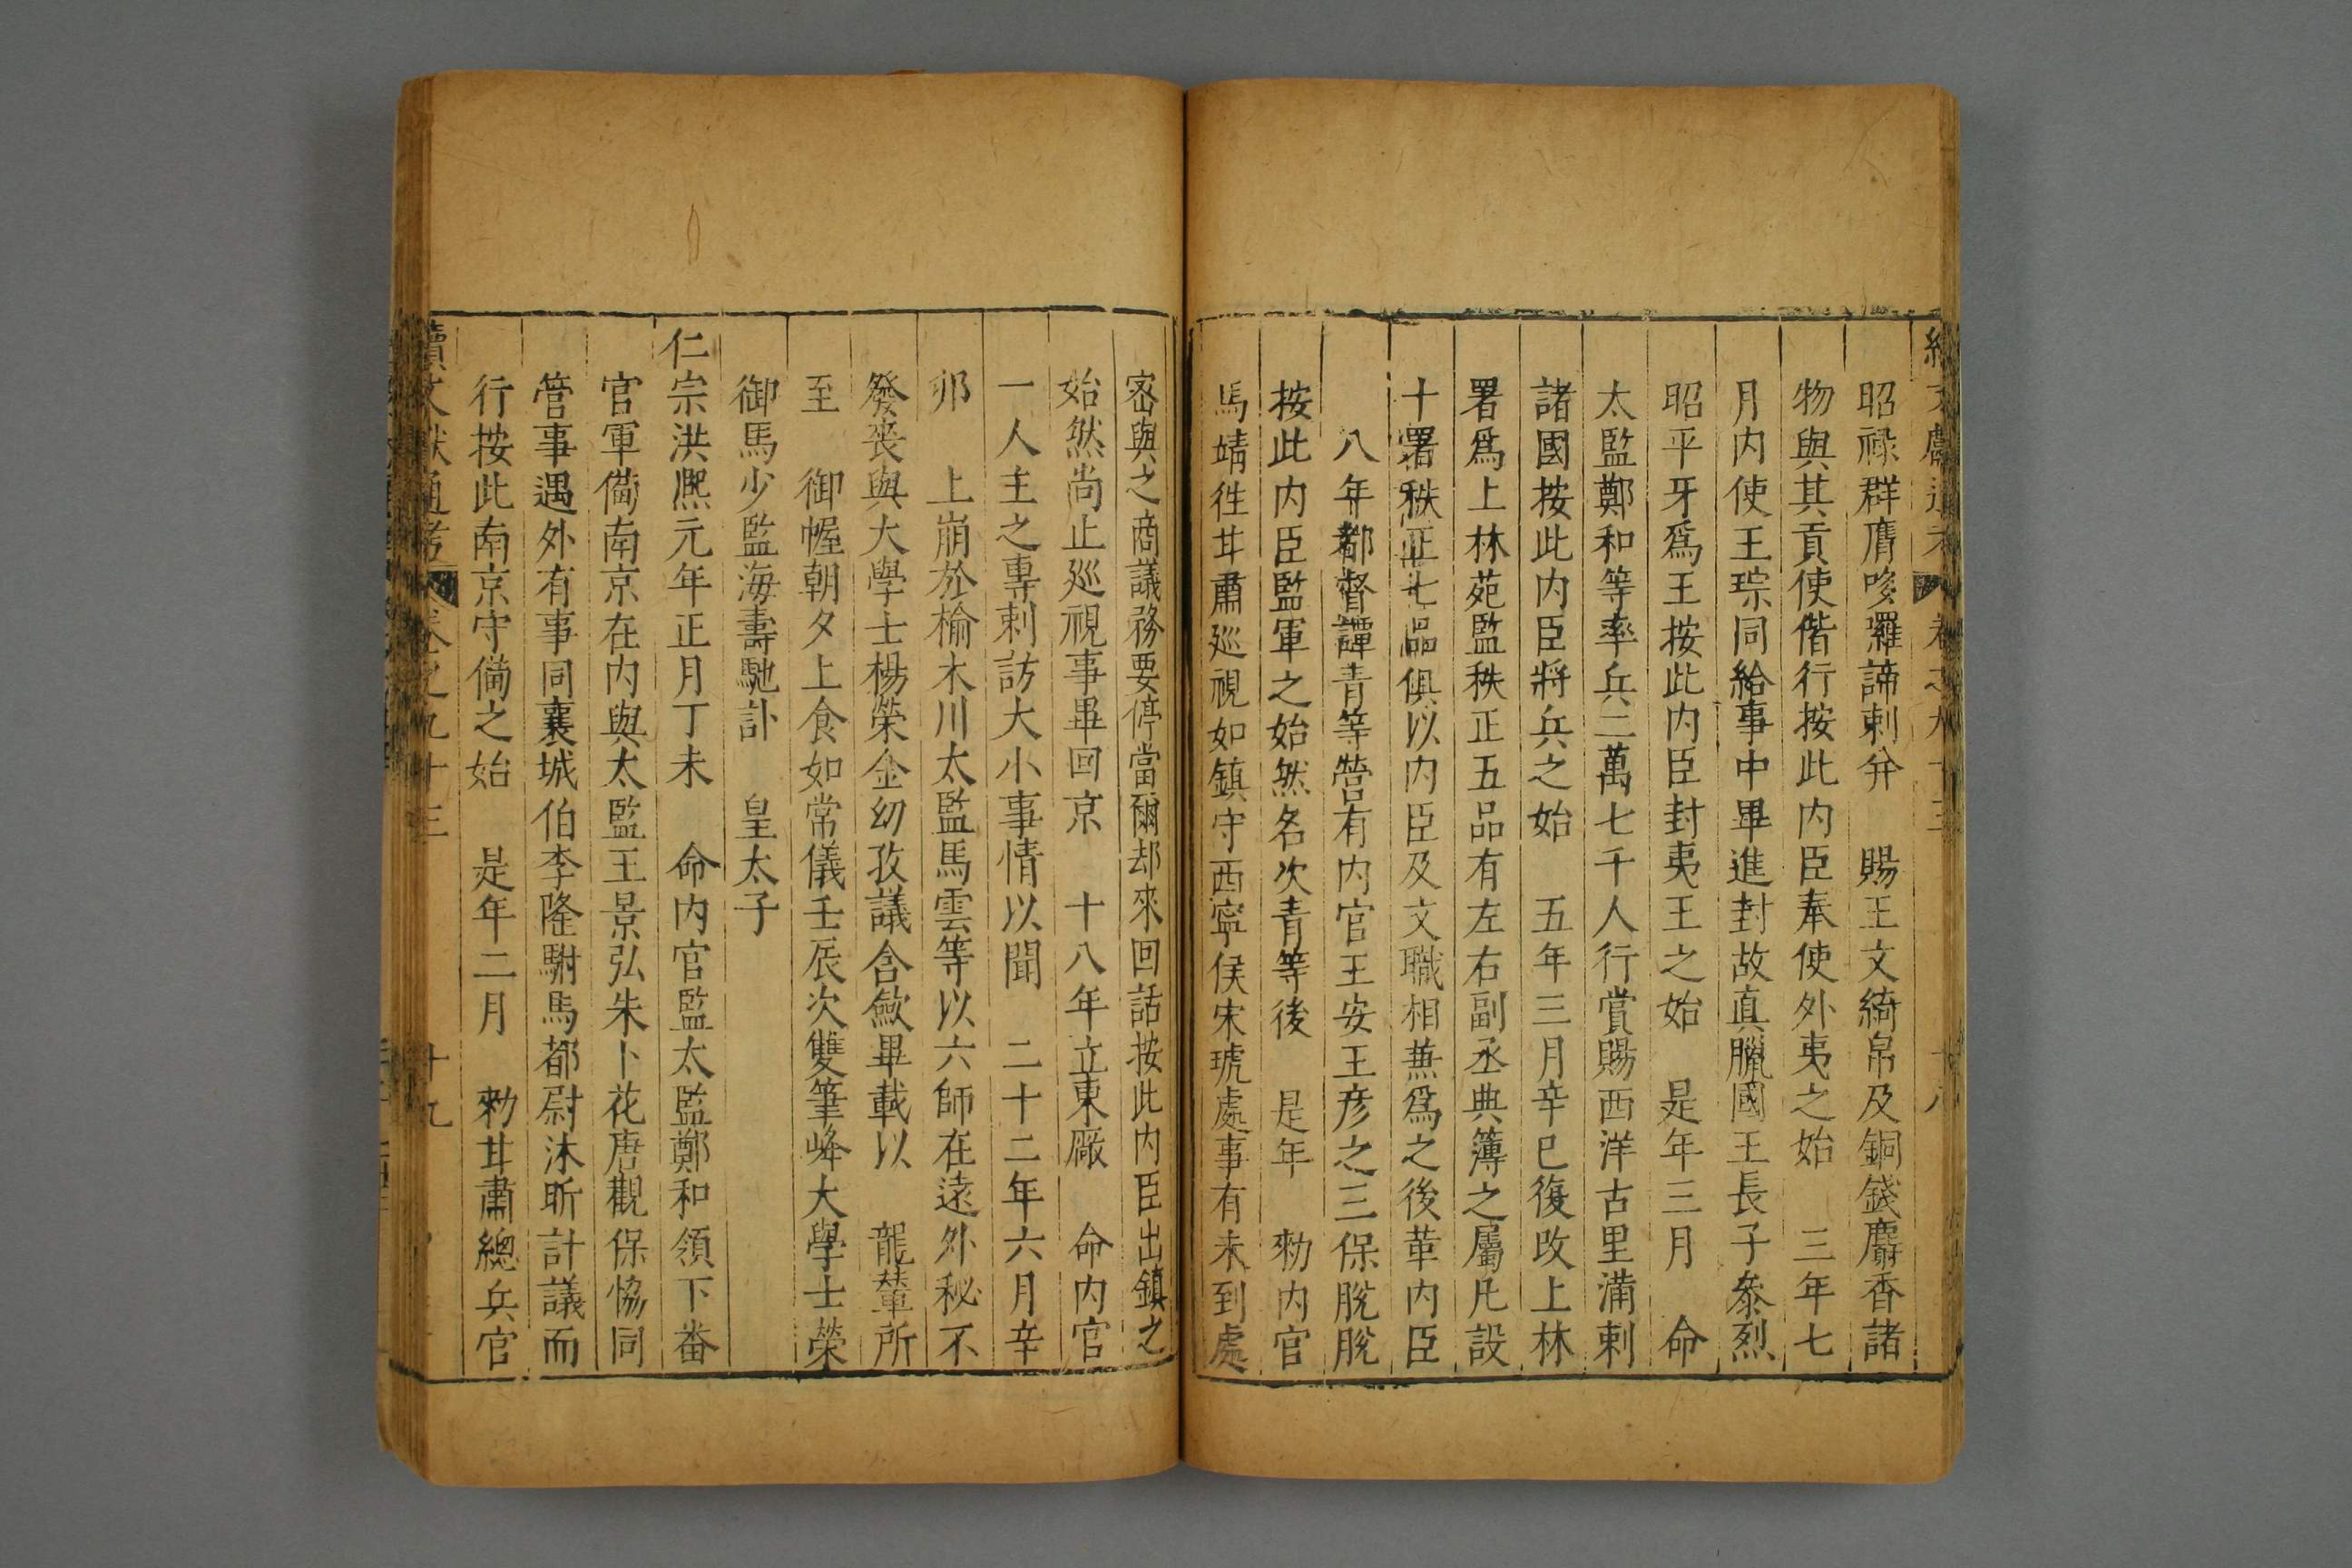 昭祿群膺哆囉諦剌并　賜王文綺帛及銅錢麝香諸
物與其貢使偕行按此内臣奉使外夷之始　三年七
月内使王琮同給事中畢進封故真臘國王長子叅烈
昭平牙爲王按此内臣封夷王之始　是年三月　命
太監鄭和等率兵二萬七千人行賞賜西洋古里滿剌
諸國按此内臣將兵之始　五年三月辛巳復改上林
署爲上林苑監秩正五品有左右副丞典簿之屬凡設
十署秩正七品俱以内臣及文職相兼爲之後革内臣
八年都督譚青等營有内官王安王彦之三保脫脫
按此内臣監軍之始然名次青等後　是年　勑内官
馬靖徃甘肅廵視如鎮守西寧侯宋琥處事有未到處
密與之商議務要停當爾却來回話按此内臣出鎮之
始然尚止廵視事畢回京　十八年立東廠　命内官
一人主之專剌訪大小事情以聞　二十二年六月辛
夘　上崩於榆木川太監馬雲等以六師在遠外秘不
發喪與大學士楊榮金幼孜議含歛畢載以　龍轝所
至　御幄朝夕上食如常儀壬辰次雙筆峰大學士榮
御馬少監海壽馳訃　皇太子
仁宗洪熈元年正月丁未　命内官監太監鄭和領下番
官軍備南京在内與太監王景弘朱卜花唐觀保恊同
管事遇外有事同襄城伯李隆駙馬都尉沐昕計議而
行按此南京守備之始　是年二月　勑甘肅總兵官
續文獻通考　卷之九十三　十九